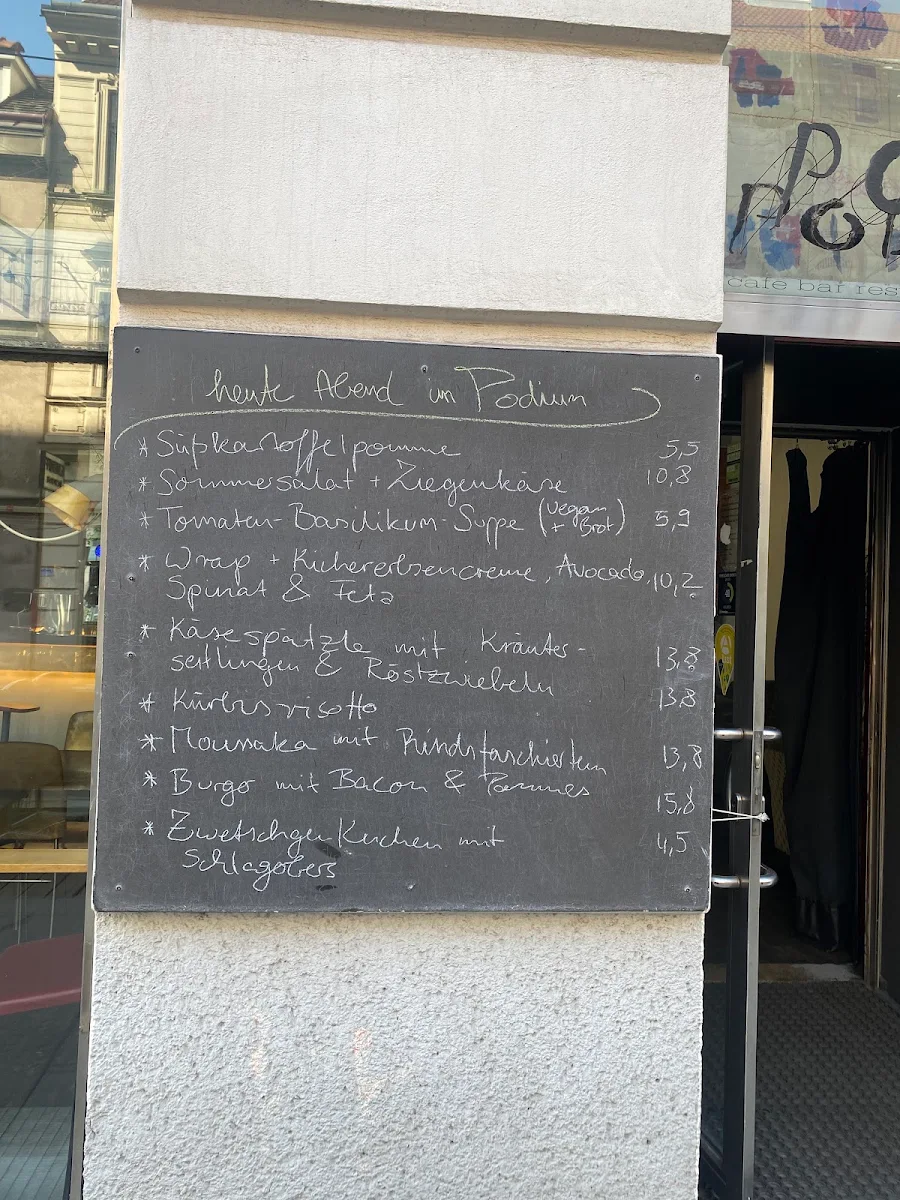 heute Abend im Podium
* Süßkartoffelpomme 5,5
* Sommersalat + Ziegenkäse 10,8
* Tomaten-Basilikum-Suppe (vegan + Brot) 5,9
* Wrap + Kichererbsencreme, Avocado, 10,2
Spinat & Feta
* Käsespätzle mit Kräuter- 13,8
seitlingen & Röstzwiebeln
* Kürbisrisotto 13,8
* Moussaka mit Rindsfaschiertem 13,8
* Burger mit Bacon & Pommes 15,8
* Zwetschgenkuchen mit 4,5
Schlagobers
cafe bar res